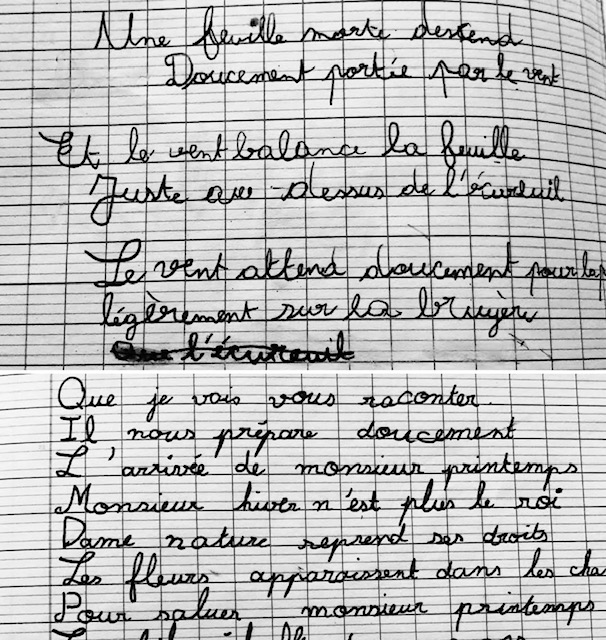 Une feuille morte descend
Doucement portée par le vent
Et le vent balance la feuille
Juste au-dessus de l'écureuil
Le vent attend doucement pour la
légèrement sur la bruyère
Que l'écureuil
Que je vais vous raconter.
Il nous prépare doucement
L'arrivée de monsieur printemps
Monsieur hiver n'est plus le roi
Dame nature reprend ses droits
Les fleurs apparaissent dans les cha
Pour saluer monsieur printemps